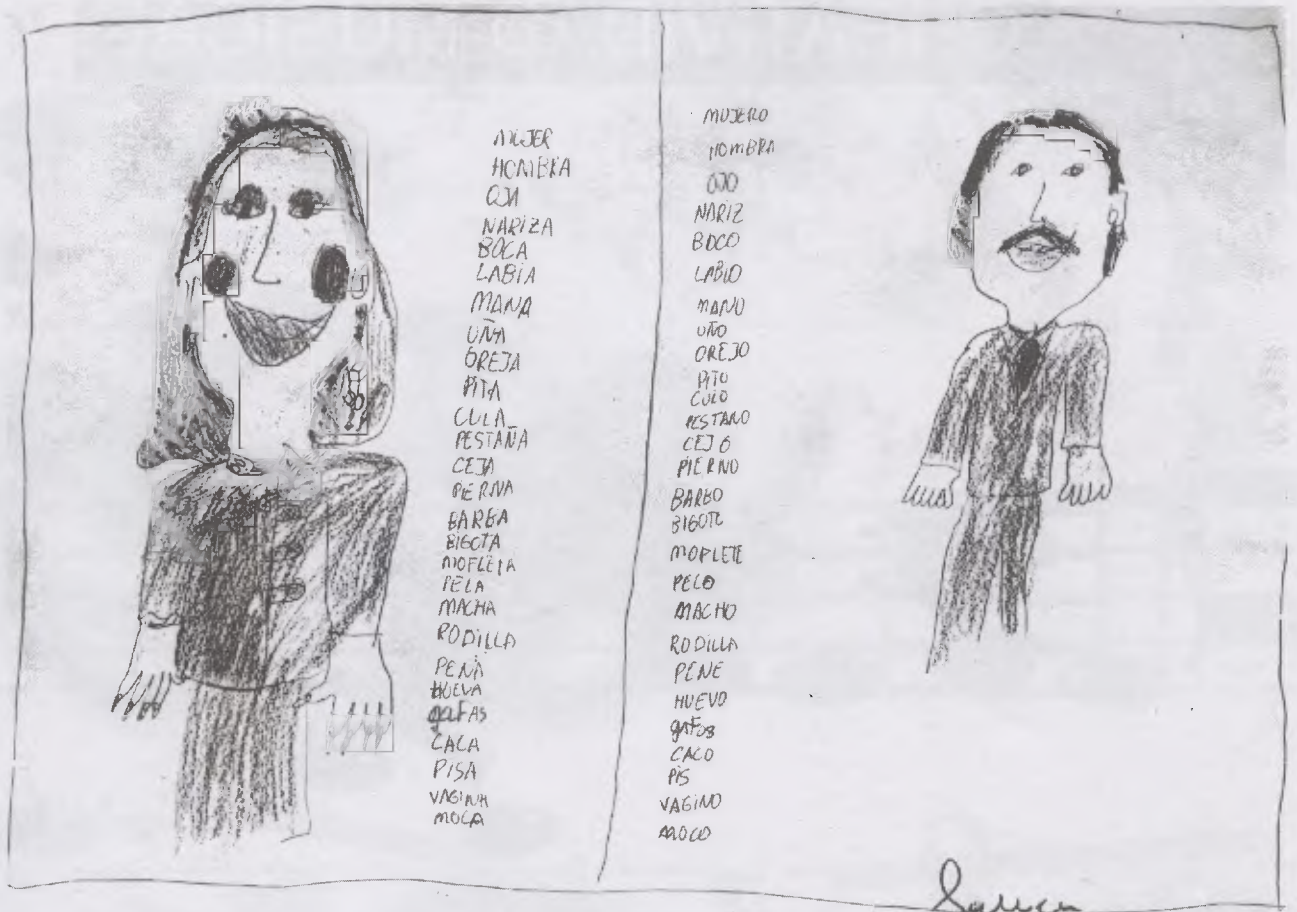 MUJER
HOMBRA
OJA
NARIZA
BOCA
LABIA
MANA
UÑA
OREJA
PITA
CULA
PESTAÑA
CEJA
PIERNA
BARBA
BIGOTA
MOFLETA
PELA
MACHA
RODILLA
PENA
HUEVA
gaFAS
CACA
PISA
VAGINA
MOCA
MUJERO
HOMBRA
OJO
NARIZ
BOCO
LABIO
MANO
UÑO
OREJO
PITO
CULO
PESTAÑO
CEJO
PIERNO
BARBO
BIGOTE
MOFLETE
PELO
MACHO
RODILLA
PENE
HUEVO
gaFos
CACO
PIS
VAGINO
MOCO